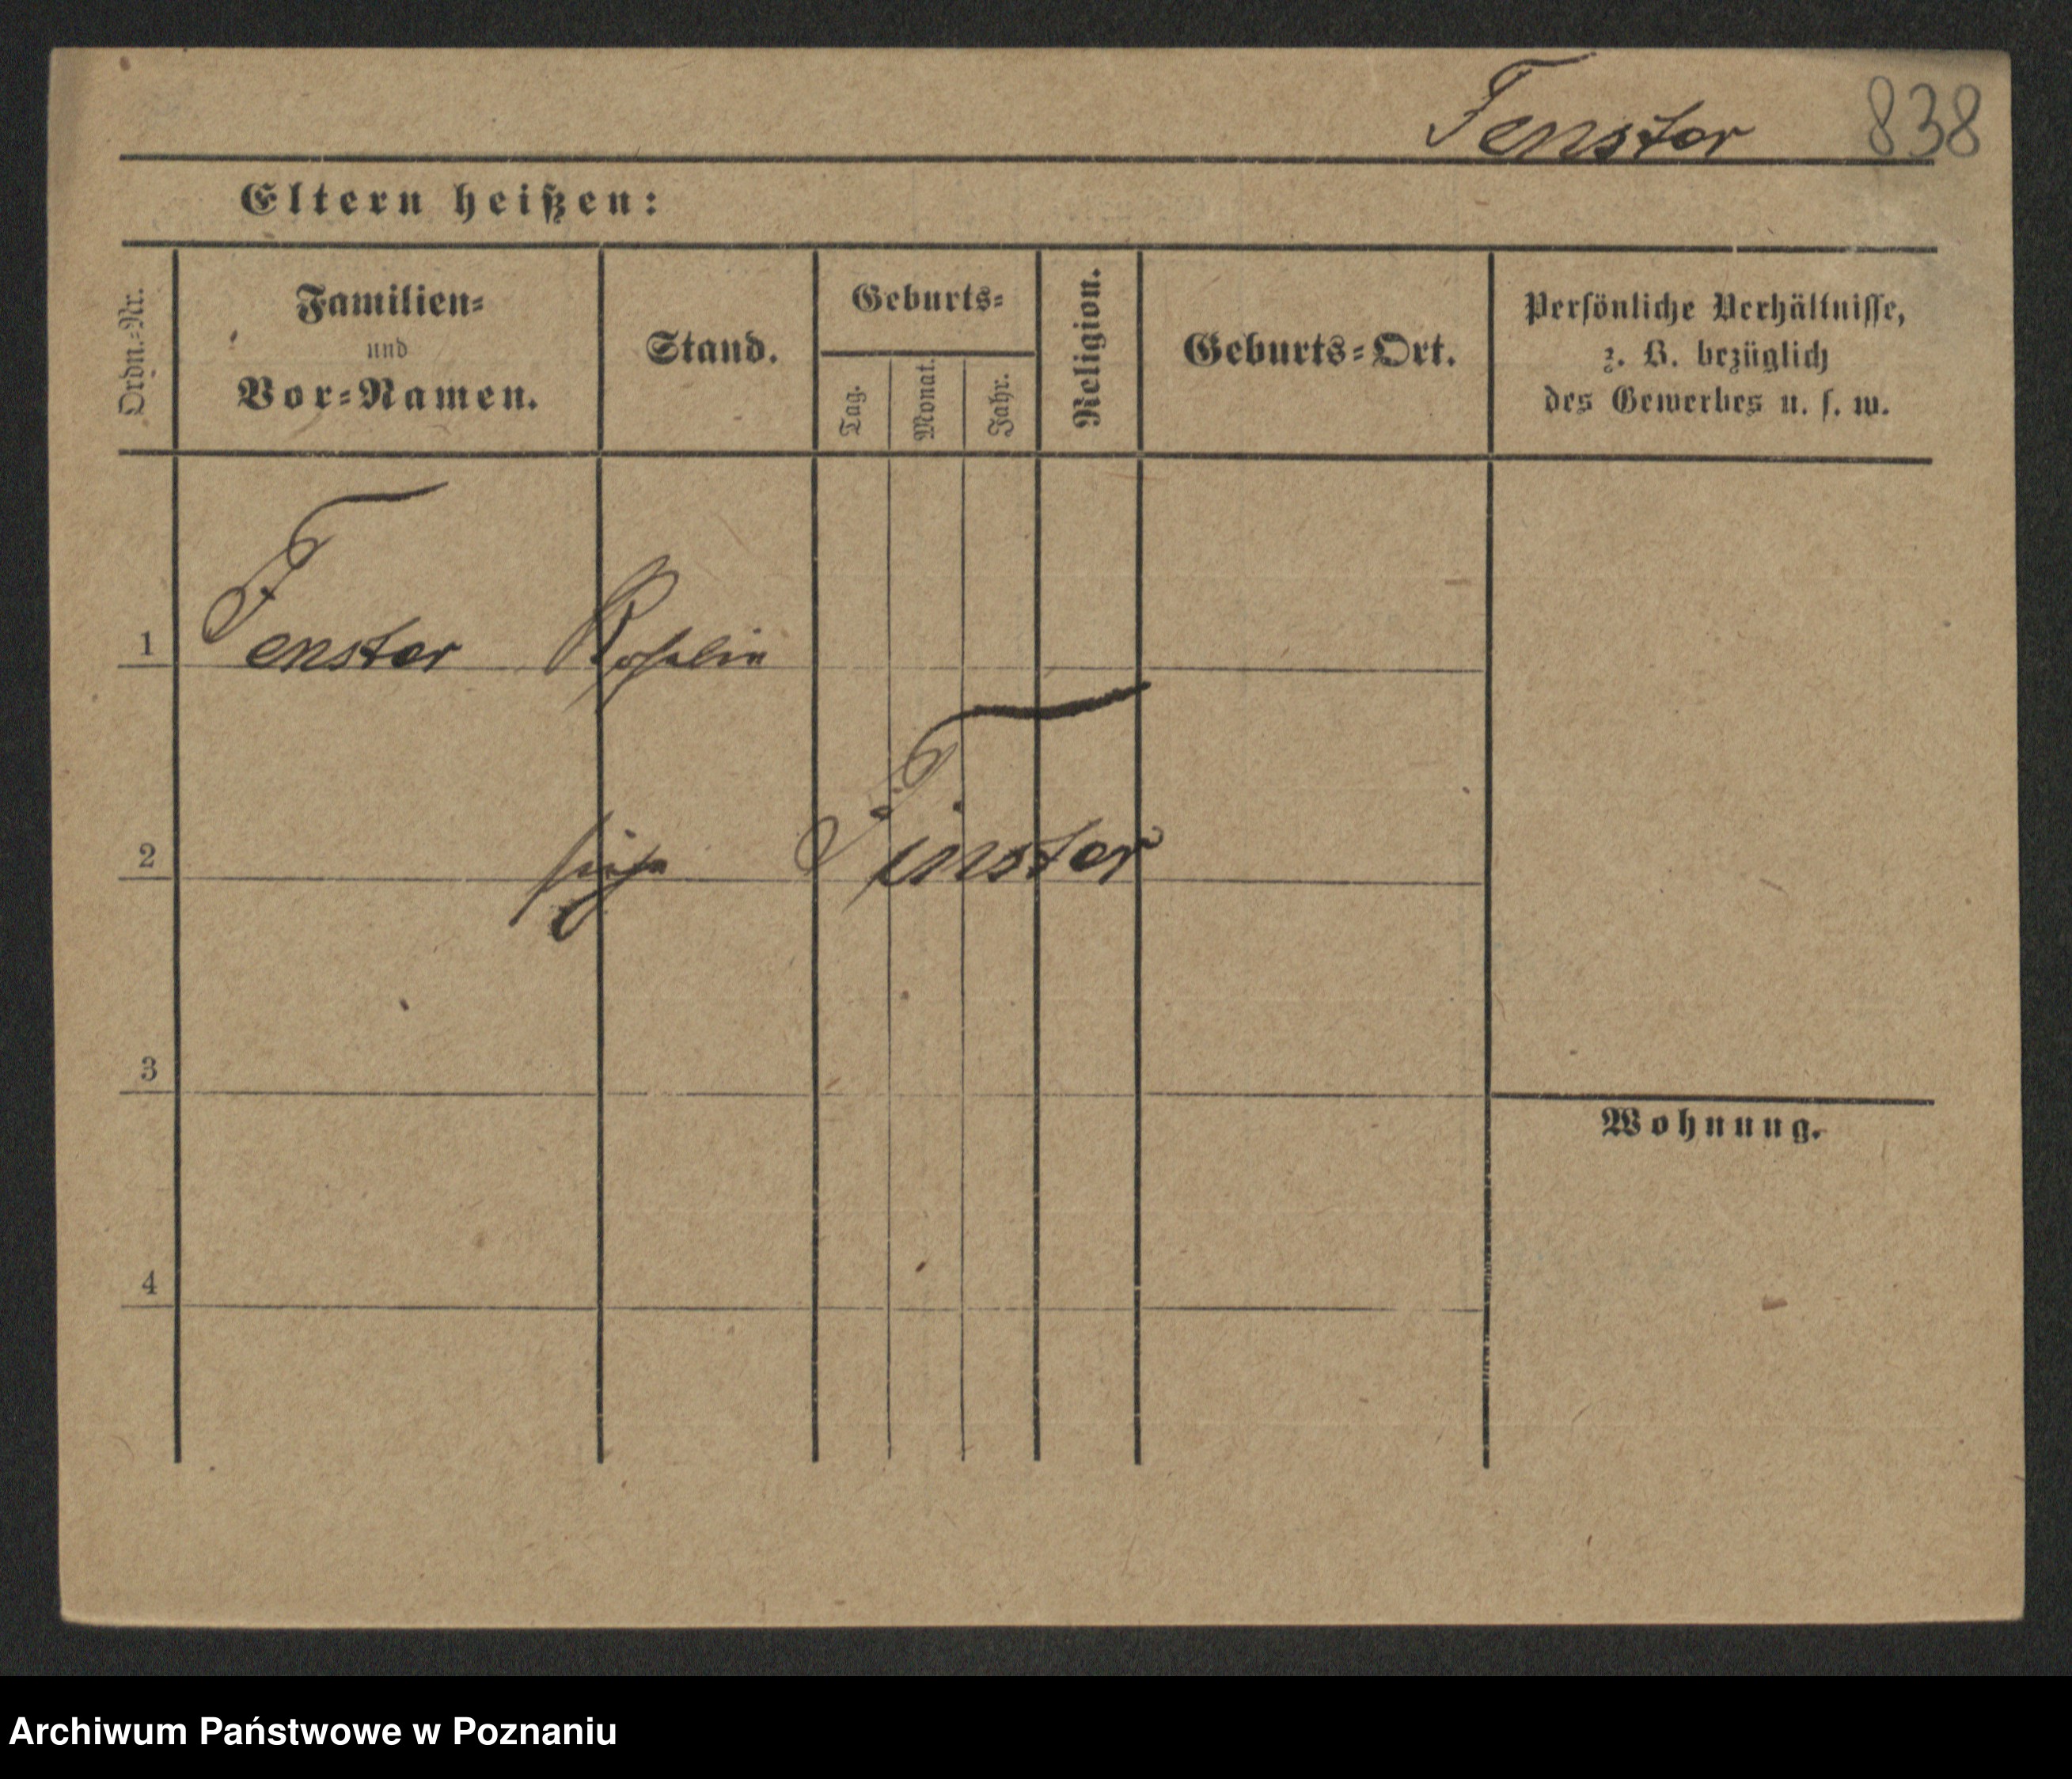 Fenster 838
Eltern heißen:
Ordn.-Nr.
Familien-
und
Vor-Namen.
Stand.
Geburts-
Tag.
Monat.
Jahr.
Religion.
Geburts-Ort.
Persönliche Verhältnisse,
z. B. bezüglich
des Gewerbes u. s. w.
1 Fenster Rosalin
2 siehe Finster
3
Wohnung.
4
Archiwum Państwowe w Poznaniu